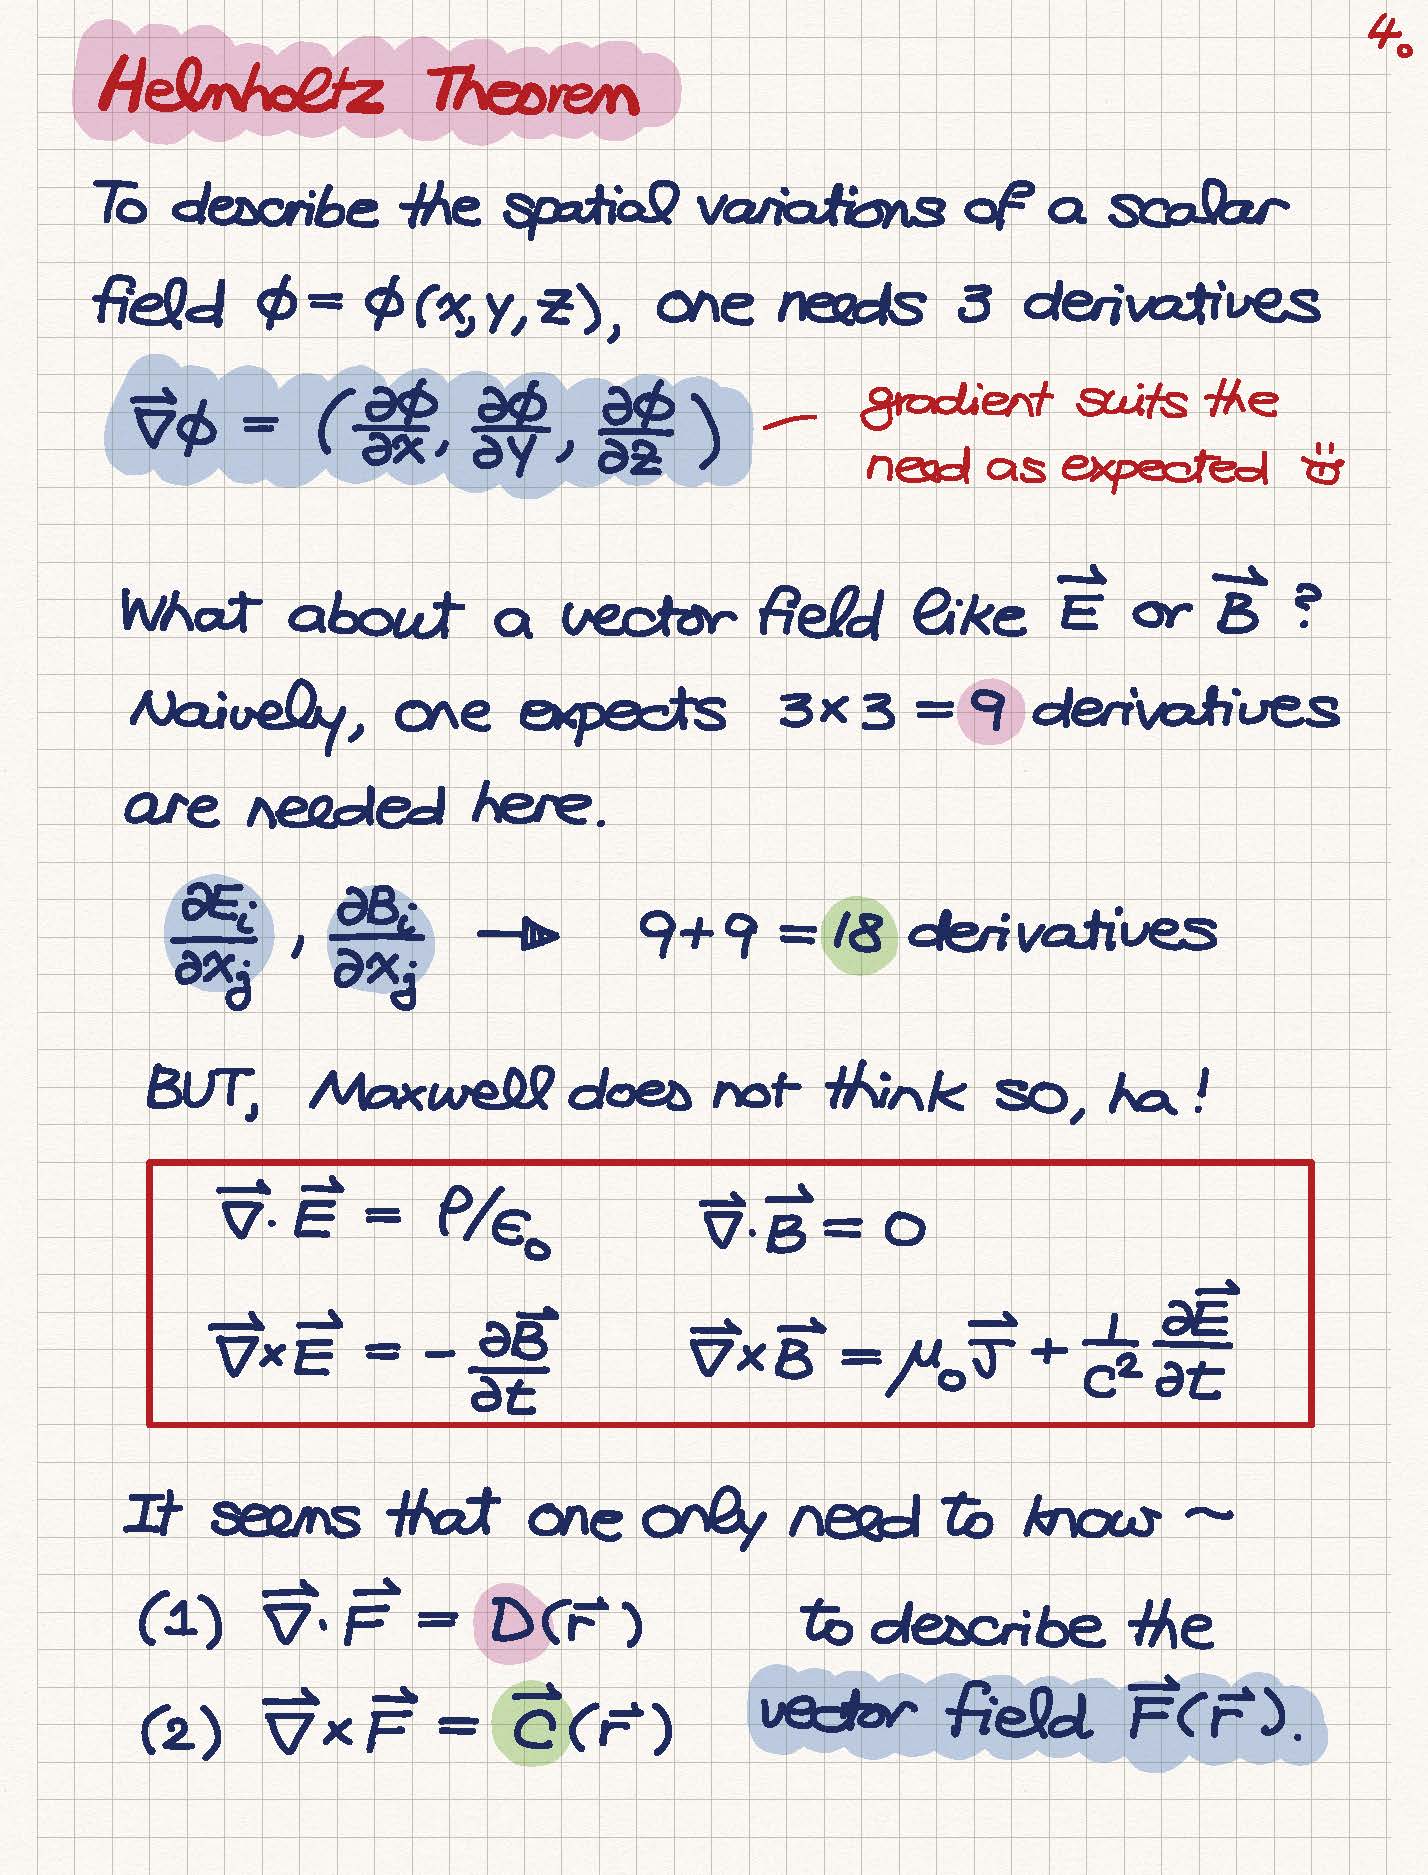 4.
Helmholtz Theorem
To describe the spatial variations of a scalar
field ϕ = ϕ(x, y, z), one needs 3 derivatives
∇⃗ϕ = (∂ϕ/∂x, ∂ϕ/∂y, ∂ϕ/∂z) — gradient suits the
need as expected
What about a vector field like E⃗ or B⃗ ?
Naively, one expects 3×3 = 9 derivatives
are needed here.
∂Eᵢ/∂xⱼ , ∂Bᵢ/∂xⱼ → 9+9 = 18 derivatives
BUT, Maxwell does not think so, ha!
∇⃗·E⃗ = ρ/ϵ₀ ∇⃗·B⃗ = 0
∇⃗×E⃗ = -∂B⃗/∂t ∇⃗×B⃗ = μ₀J⃗ + 1/c² ∂E⃗/∂t
It seems that one only need to know ~
(1) ∇⃗·F⃗ = D(r⃗) to describe the
(2) ∇⃗×F⃗ = C⃗(r⃗) vector field F⃗(r⃗).